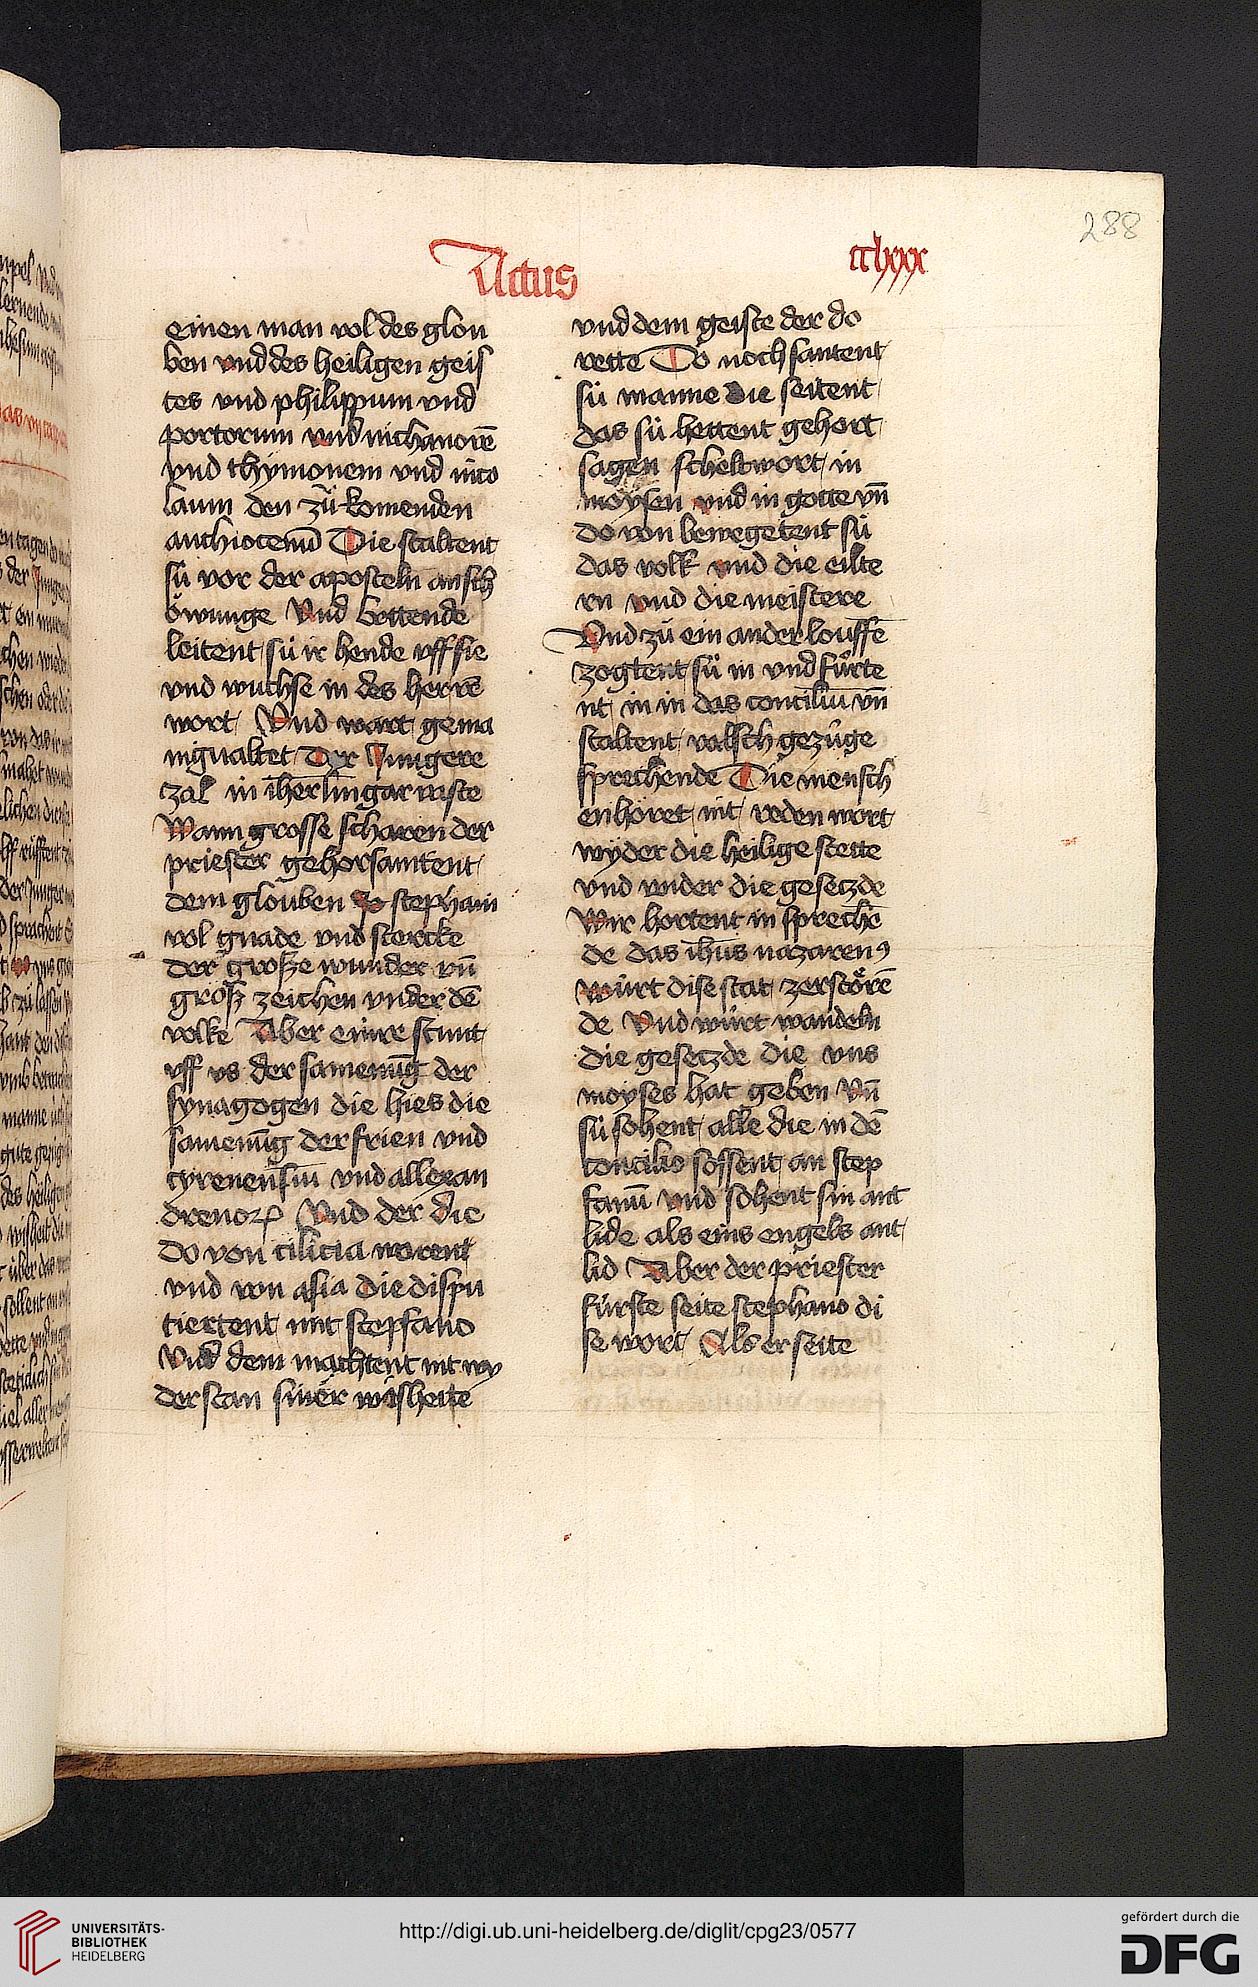 288
Actus
cclxxx
einen man vol des glou
ben vnd des heiligen geis
tes vnd philippum vnd
portorum vnd nichanorē
vnd thymonem vnd nico
laum den zů komenden
anthiocenū Die staltent
sü vor der aposteln ansch
öwunge Vnd bettende
leitent sü ir hende vff sie
vnd wuchse in des herrē
wort Vnd wart gema
nigualtet Der Jungere
zal in iherlingar vaste
Wann grosse scharen der
priester gehorsamtent
dem glouben So stephani
vol gnade vnd stercke
der grosze wunder vn̄
grosz zeichen vnder dē
volke Aber einre stunt
vff vs der samenūg der
synagogen die hies die
samenūg der frien vnd
cyrenensiū vnd allexan
drenorꝝ Vnd der die
do von cilicia worent
vnd von asia die dispu
tiertent mit stepfano
Vnd dem mochtent nit wy
der stan siner wisheite
vnd dem geiste der do
rette Do noch santent
sü manne die seitent
das sü hettent gehort
sagen scheltwort in
moysen vnd in gotte vn̄
do von bewegetent sü
das volk vnd die eilte
rn vnd die meistere
Vnd zů ein ander louffē
zogtent sü in vnd fůrte
nt in in das conciliū vn̄
staltent valsch gezüge
sprechende Die mensch
en höret nit reden wort
wyder die heilige stette
vnd wider die gesetzde
Wir hortent in sprechē
de das ih̄us nazarenꝰ
würt dise stat zerstörē
de Vnd würt wandeln
die gesetzde die vns
moyses hat geben Vn̄
sü sohent alle die in dē
concilio sossent an step
fanū vnd sohent sin ant
lide als eins engels ant
lid Aber der priester
fürste seite stephano di
se wort Als er seite
UNIVERSITÄTS-
BIBLIOTHEK
HEIDELBERG
http://digi.ub.uni-heidelberg.de/diglit/cpg23/0577
gefördert durch die
DFG